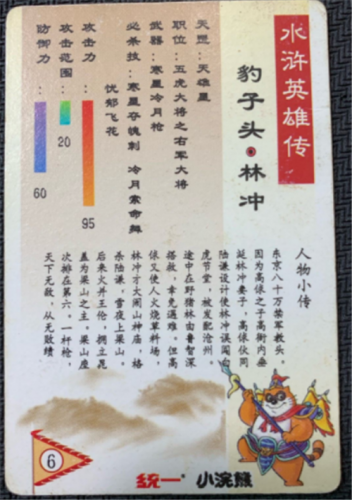 水浒英雄传
豹子头·林冲
天罡：天雄星
职位：五虎大将之右军大将
武器：寒星冷月枪
必杀技：寒星夺魄刺 冷月索命舞
忧郁飞花
攻击力：
95
攻击范围：
20
防御力：
60
人物小传
东京八十万禁军教头。
因为高俅之子高衙内垂
涎林冲妻子，高俅伙同
陆谦设计使林冲误闯白
虎节堂，被发配沧州。
途中在野猪林由鲁智深
搭救，幸免遇难。但高
俅又使人火烧草料场，
林冲才大闹山神庙，格
杀陆谦，雪夜上梁山，
后来火并王伦，拥立晁
盖为梁山之主，梁山座
次排在第六，一杆枪，
天下无敌，从无败绩
6
统一 小浣熊